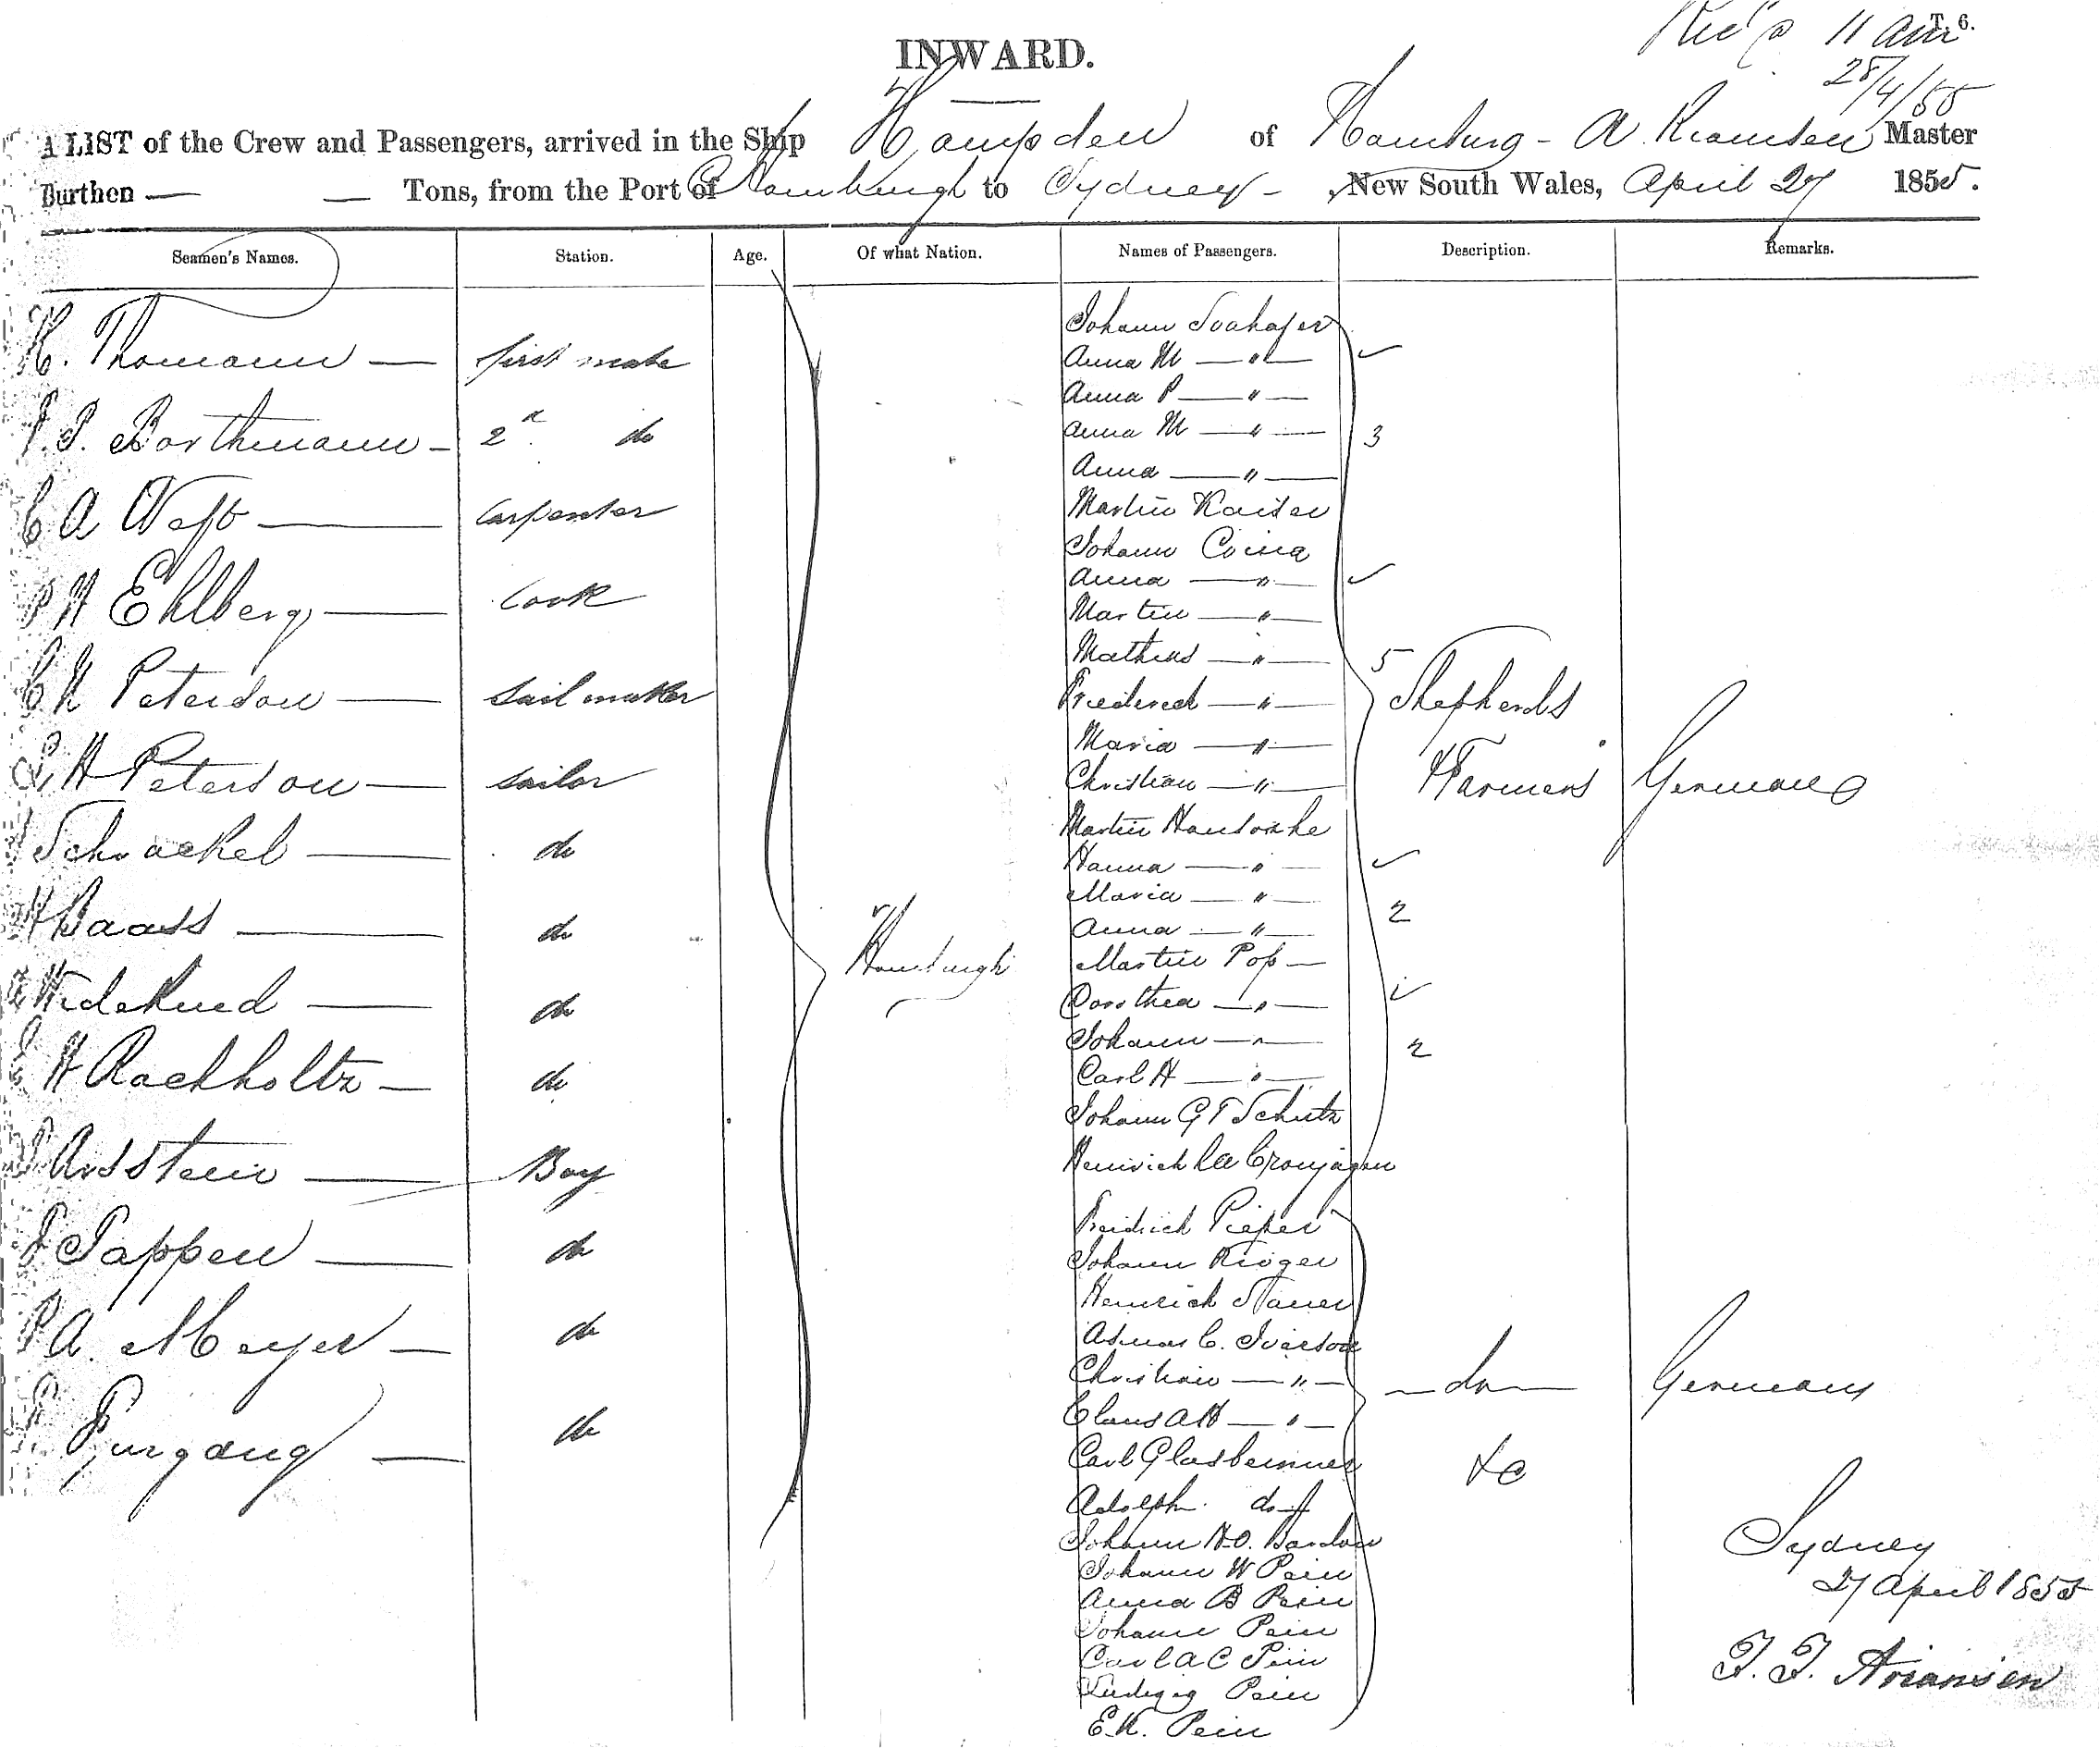 T. 6.
11 am
28/4/55
INWARD.
A LIST of the Crew and Passengers, arrived in the Ship Hampden of Hamburg - A. Master
Burthen — — Tons, from the Port of Hamburgh to Sydney - New South Wales, April 27 1855.
Seamen's Names. Station. Age. Of what Nation. Names of Passengers. Description. Remarks.
H. Thomann — first mate
Borthmann — 2d do
C A — carpenter
Ehlberg — Cook
Peterson — Sail maker
H Peterson — sailor
Schrackel — do
Baass — do
Widekind — do
H Rackholtz — do
Arsstein — Boy
Tappen — do
A. Meyer — do
Purgang — do
Hamburgh
Johann
Anna M — " —
Anna P — " —
Anna M — " —
Anna — " —
Martin Kaiser
Johann
Anna — " —
Martin — " —
Mathias — " —
Friederich — " —
Maria — " —
Christian — " —
Martin
Hanna — " —
Maria — " —
Anna — " —
Martin Pop —
Dorothea — " —
Johann — " —
Carl H — " —
Johann G T Schutz
Heinrich
3
5
2
2
Shepherds
& Farmers
Germans
Freidrich Pieper
Johann Kroger
Heinrich
Asmus C. Iverson
Christian — " —
Claus A H — " —
Carl Glasbrenner
Adolph do
Johann H.O.
Johann W Pein
Anna B Pein
Johann Pein
Carl A C Pein
Ludwig Pein
E.K. Pein
— do —
&c
Germans
Sydney
27 April 1855
T. T. Ariansen